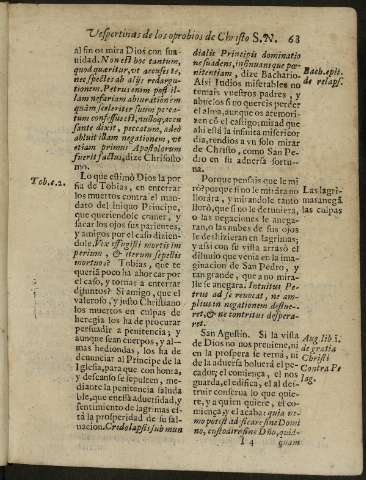 Vespertinas de los oprobios de Christo S.N. 68
al fin os mira Dios con sua-
uidad. Non est hoc tantum,
quod quæritur, vt accuses te,
nec spectes ab alijs redargu-
tionem. Petrus enim post il-
lam nefariam abiurationem
quàm sceleriter suum pecca-
tum confessus est, nulloq; accu
sante dixit, peccatum, adeò
abluit illam negationem, vt
etiam primus Apostolorum
fuerit factus, dize Chrisosto
mo.
Lo que estimò Dios la por
fia de Tobias, en enterrar
los muertos contra el man-
dato del iniquo Principe,
que queriendole comer, y
sacar los ojos sus parientes,
y amigos por el caso dizien-
dole. Vix effugisti mortis im
perium, & iterum sepellis
mortuos? Tobias, que te
queria poco ha ahorcar por
el caso, y tornar a enterrar
difuntos? Si amigo, que el
valeroso, y justo Christiano
los muertos en culpas de
heregia los ha de procurar
persuadir a penitencia; y
aunque sean cuerpos, y al-
mas hediondas, los ha de
denunciar al Principe de la
Iglesia, para que con honra,
y descanso se sepulcen, me-
diante la penitencia saluda
ble, que en essa aduersidad, y
sentimiento de lagrimas es-
tà la prosperidad de su sal-
uacion. Credo lapsis sub mun
Tob. c. 2.
dialis Principis dominatio
ne suadens, insinuansque pœ-
nitentiam, dize Bachario.
Assi Iudios miserables no
temais vuestros padres, y
abuelos si no quereis perder
el alma, aunque os atemori-
zen cõ el castigo; mirad que
ahi està la infinita misericor
dia, rendios a vn solo mirar
de Christo, como San Pe-
dro en su aduersa fortu-
na.
Porque pensais que le mi
rò? porque si no le mirâra no
llorâra, y mirandole tanto
llorò, que si no le detuuiera,
o las negaciones le anega-
ran, o las nubes de sus ojos
se deshizieran en lagrimas;
y assi con su vista atrasò el
diluuio que venia en la ima-
ginacion de San Pedro, y
tan grande, que a no mira-
lle se anegara. Intuitus Pe-
trus ad se reuocat, ne am-
plius in negationem deflue-
ret, & ne contritus despera-
ret.
San Agustin. Si la vista
de Dios no nos preuiene, ni
en la prospera se tema, ni
de la aduersa boluerà el pe-
cador; el comiença, el nos
guarda, el edifica, el al des-
truir conserua lo que quie-
re, y a quien quiere, el co-
miença y el acaba: quia ne-
mo potest ad ficare sine Domi
no, custodire sine Dño, quid-
Bach. epis.
de relaps.
Las lagri-
mas anegā
las culpas
Aug. lib. 1.
de gratia
Christi
Contra Pe
lag.
I 4 quam